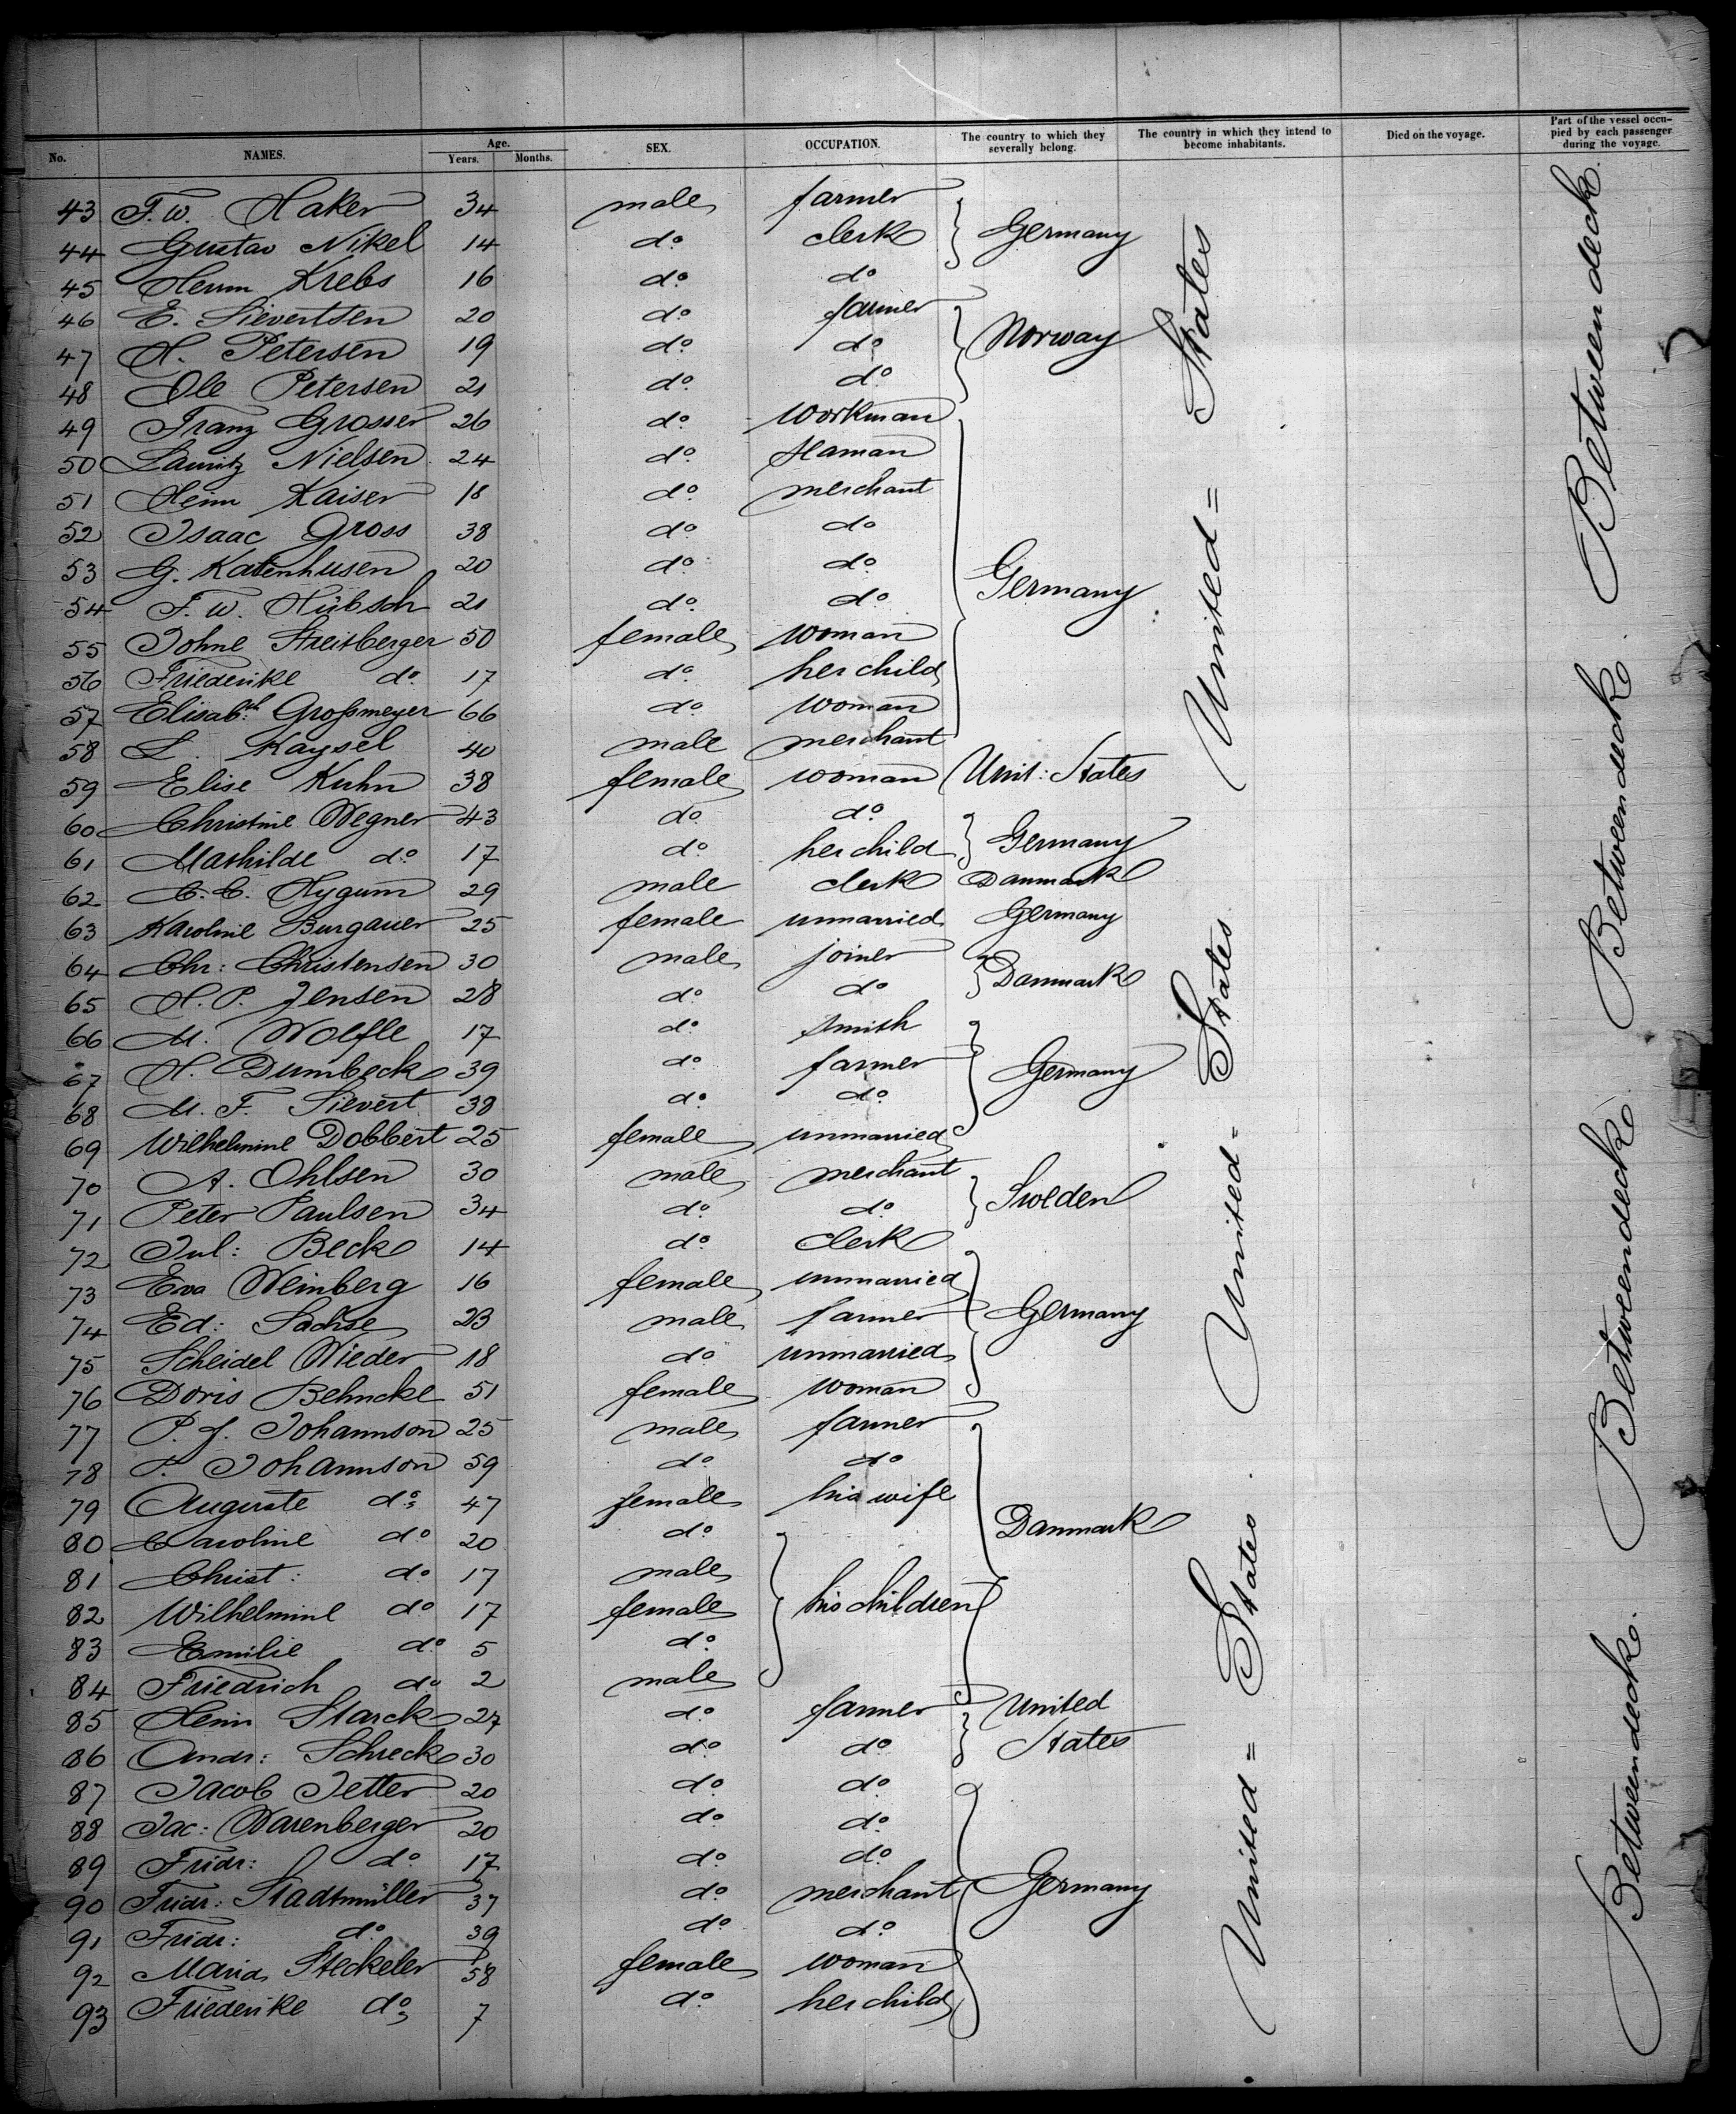 No. NAMES. Age. Years. Months. SEX. OCCUPATION. The country to which they severally belong. The country in which they intend to become inhabitants. Died on the voyage. Part of the vessel occupied by each passenger during the voyage.
43 F. W. Haker 34 male farmer
44 Gustav Nikel 14 do clerk Germany
45 Herm Krebs 16 do do
46 E. Sievertsen 20 do farmer
47 H. Petersen 19 do do Norway
48 Ole Petersen 21 do do
49 Franz Grosser 26 do workman
50 Lauritz Nielsen 24 do
51 Heinr Kaiser 18 do merchant
52 Isaac Gross 38 do do
53 G. Katenhusen 20 do do
54 F. W. Hübsch 21 do do Germany
55 Johne Streitberger 50 female woman
56 Friederike do 17 do her child
57 Elisabth Großmeyer 66 do woman
58 L. Kaysel 40 male merchant
59 Elise Kuhn 38 female woman Unit: States
60 Christine Wegner 43 do do
61 Mathilde do 17 do her child Germany
62 C. C. Nygum 29 male clerk Danmark
63 Karoline Burgauer 25 female unmarried Germany
64 Chr: Christensen 30 male joiner
65 H. P. Jensen 28 do do Danmark
66 M. Wolfle 17 do smith
67 H. Dumbeck 39 do farmer Germany
68 M. F. Sievert 38 do do
69 Wilhelmine Dobbert 25 female unmarried
70 A. Ohlsen 30 male merchant
71 Peter Paulsen 34 do do Sweden
72 Jul: Beck 14 do clerk
73 Eva Weinberg 16 female unmarried
74 Ed: Sachse 23 male farmer Germany
75 Scheidel Wieder 18 do unmarried
76 Doris Behncke 51 female woman
77 P. J. Johannson 25 male farmer
78 P. Johannson 59 do do
79 Auguste do 47 female his wife
80 Caroline do 20 do Danmark
81 Christ: do 17 male
82 Wilhelmine do 17 female his children
83 Emilie do 5 do
84 Friedrich do 2 male
85 Heinr Starck 27 do farmer United
86 Andr: Schreck 30 do do States
87 Jacob Jetter 20 do do
88 Jac: Warenberger 20 do do
89 Fridr: do 17 do do
90 Fridr: Stadtmüller 37 do merchant Germany
91 Fridr: do 39 do do
92 Maria Steckeler 58 female woman
93 Friederike do 7 do her child
United = States
United = States
United = States
Betweendeck.
Betweendeck.
Betweendeck.
Betweendeck.